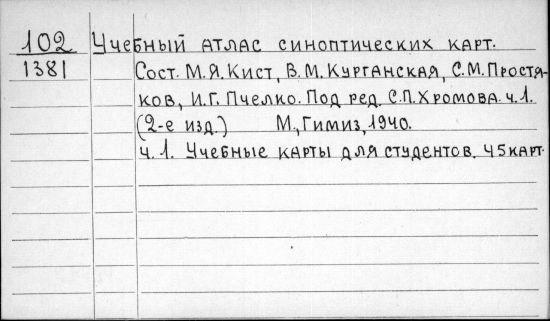 102 Учебный атлас синоптических карт.
1381 Сост. М.Я. Кист, В.М. Курганская, С.М. Простя-
ков, И.Г. Пчелко. Под ред. С.П. Хромова. ч.1.
(2-е изд.) М., Гимиз, 1940.
ч.1. Учебные карты для студентов. 45 карт.